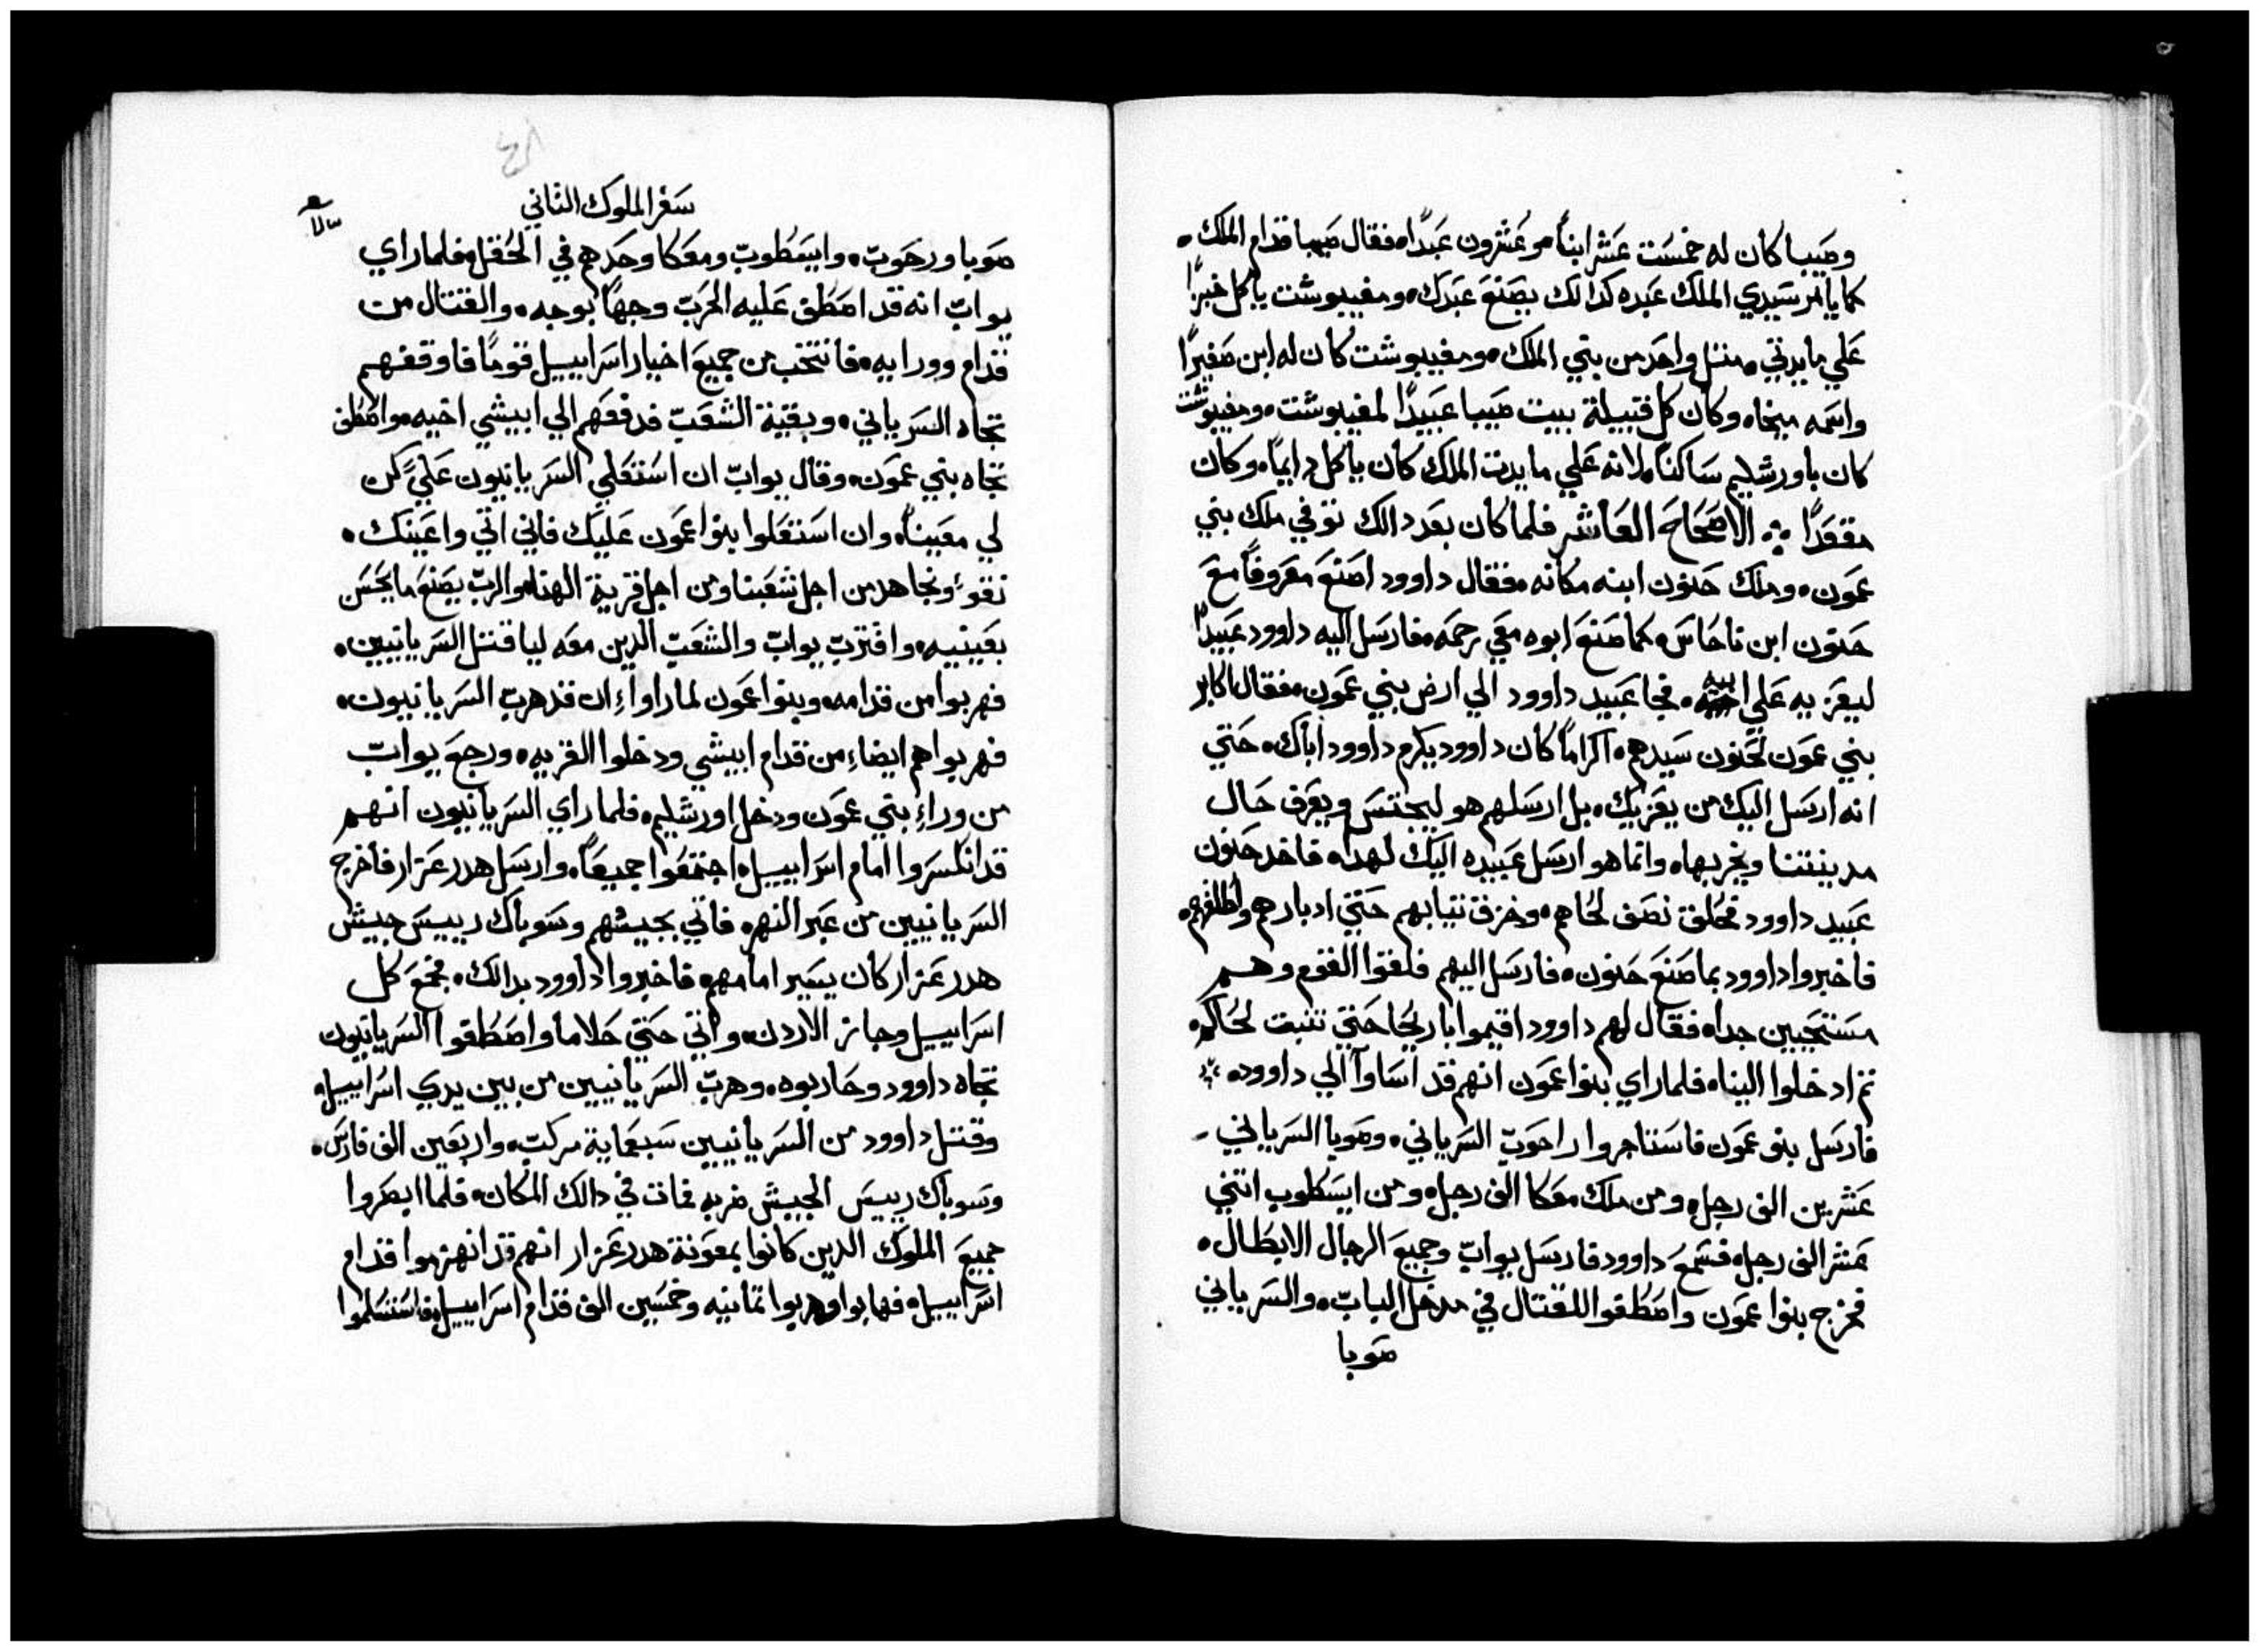 وصيبا كان له خمست عشر ابناً وعشرون عبداً، فقال صيبا قدام الملك،
كما يامر سيدي الملك عبده كدالك يصنع عبدك، ومفيبوشت ياكل خبزاً
علي مايدتي، متل واحد من بني الملك، ومفيبوشت كان له ابن صغيراً
واسمه ميخا، وكان كل قبيلة بيت صيبا عبيداً لمفيبوشت، ومفيبوشت
كان باورشليم ساكناً، لانه علي مايدت الملك كان ياكل دايماً، وكان
مقعداً ؞ الاصحاح العاشر فلما كان بعد دالك توفي ملك بني
عمون، وملك حنون ابنه مكانه، فقال داوود اصنع معروفاً مع
حنون ابن ناحاس، كما صنع ابوه معي رحمه، فارسل اليه داوود عبيداً
ليعزيه علي ابيه، فجا عبيد داوود الي ارض بني عمون، فقال اكابر
بني عمون لحنون سيدهم، اكراماً كان داوود يكرم داوود اباك، حتي
انه ارسل اليك من يعزيك، بل ارسلهم هو ليجتس ويعرف حال
مدينتنا ويخربها، وانما هو ارسل عبيده اليك لهدا، فاخد حنون
عبيد داوود فحلق نصف لحاهم، وخرق تيابهم حتي ادبارهم واطلقهم،
فاخبروا داوود بما صنع حنون، فارسل اليهم فلقوا القوم وهم
مستحيين جدا، فقال لهم داوود اقيموا باريحا حتي تنبت لحاكم،
تم ادخلوا الينا، فلما راي بنوا عمون انهم قد اساوآ الي داوود، ؞
فارسل بنو عمون فاستاجروا راحوب السرياني، وصوبا السرياني
عشرين الف رجل، ومن ملك معكا الف رجل، ومن ايسطوب اتني
عشر الف رجل، فسمع داوود فارسل يواب وجميع الرجال الابطال،
فخرج بنوا عمون واصطفوا للقتال في مدخل الباب، والسرياني
صوبا
سفر الملوك التاني
صوبا ورحوب، وايسطوب ومعكا وحدهم في الحقل، فلما راي
يواب انه قد اصطف عليه الحرب وجهاً بوجه، والقتال من
قدام وورايه، فانتخب من جميع اخيار اسراييل قوماً فاوقفهم
تجاه السرياني، وبقية الشعب فدفعهم الي ابيشي اخيه، واصطف
تجاه بني عمون، وقال يواب ان استعلي السريانيون علي كن
لي معيناً، وان استعلوا بنوا عمون عليك فاني اتي واعينك،
نقوء ونجاهد من اجل شعبنا ومن اجل قرية الهنا، والرب يصنع ما يحسن
بعينيه، واقترب يواب والشعب الدين معه ليقاتل السريانيين،
فهربوا من قدامه، وبنوا عمون لما راواء ان قد هرب السريانيون،
فهربوا هم ايضاء من قدام ابيشي ودخلوا القريه، ورجع يواب
من وراء بني عمون ودخل اورشليم، فلما راي السريانيون انهم
قد انكسروا امام اسراييل، اجتمعوا جميعاً، وارسل هدرعزار فاخرج
السريانيين من عبر النهر، فاتي بجيشهم وسوباك رييس جيش
هدرعزار كان يسير امامهم، فاخبروا داوود بدالك، فجمع كل
اسراييل وجاز الاردن، واتي حتي حلاما، واصطفوا السريانيون
تجاه داوود وحاربوه، وهرب السريانيين من بين يدي اسراييل،
وقتل داوود من السريانيين سبعماية مركب، واربعين الف فارس،
وسوباك رييس الجيش ضربه فمات في دالك المكان، فلما ابصروا
جميع الملوك الدين كانوا بمعونة هدرعزار انهم قد انهزموا قدام
اسراييل، فهابوا وهربوا تمانيه وخمسين الف قدام اسراييل، فاستسلموا